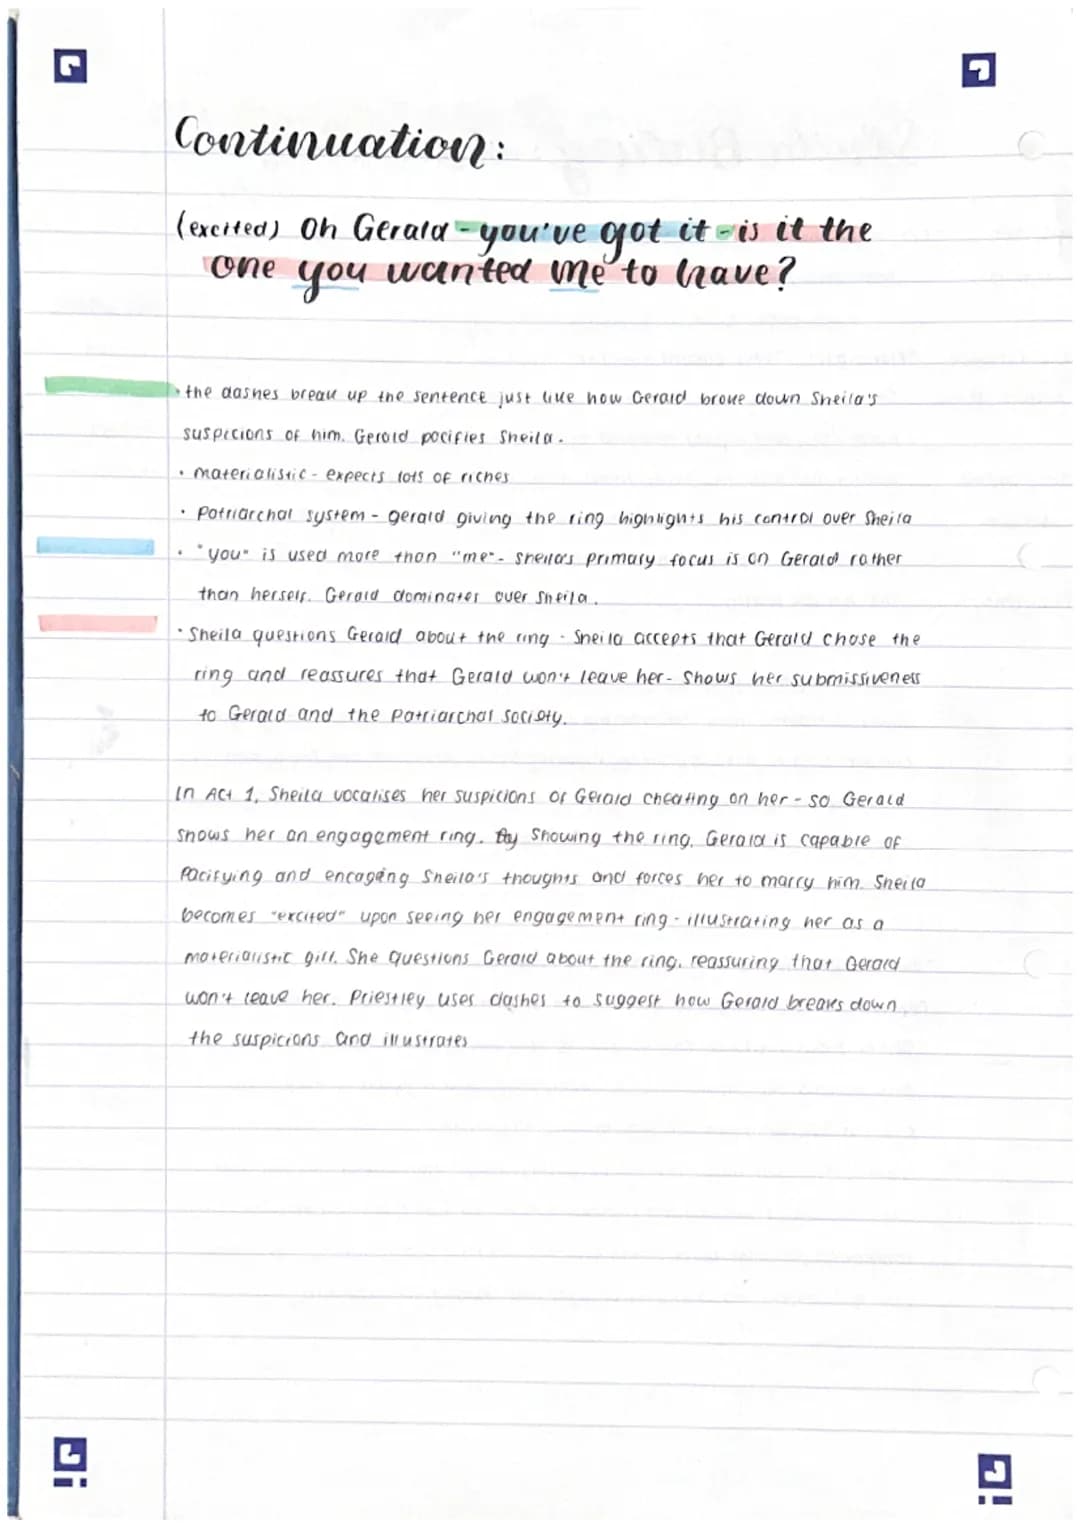 Continuation:
(excited) Oh Gerald - you've got it - is it the
one you wanted me to have?
• the dashes break up the sentence just like how Gerald broke down Sheila's
suspicions of him. Gerald pacifies Sheila.
• materialistic - expects lots of riches
• Patriarchal system - gerald giving the ring highlights his control over Sheila
• "you" is used more than "me" - sheila's primary focus is on Gerald rather
than herself. Gerald dominates over Sheila.
• Sheila questions Gerald about the ring - Sheila accepts that Gerald chose the
ring and reassures that Gerald won't leave her - Shows her submissiveness
to Gerald and the Patriarchal society.
In Act 1, Sheila vocalises her suspicions of Gerald cheating on her - so Gerald
shows her an engagement ring. By Showing the ring, Gerald is capable of
Pacifying and encaging Sheila's thoughts and forces her to marry him. Sheila
becomes "excited" upon seeing her engagement ring - illustrating her as a
materialistic girl. She Questions Gerald about the ring, reassuring that Gerald
won't leave her. Priestley uses dashes to suggest how Gerald breaks down
the suspicions and illustrates